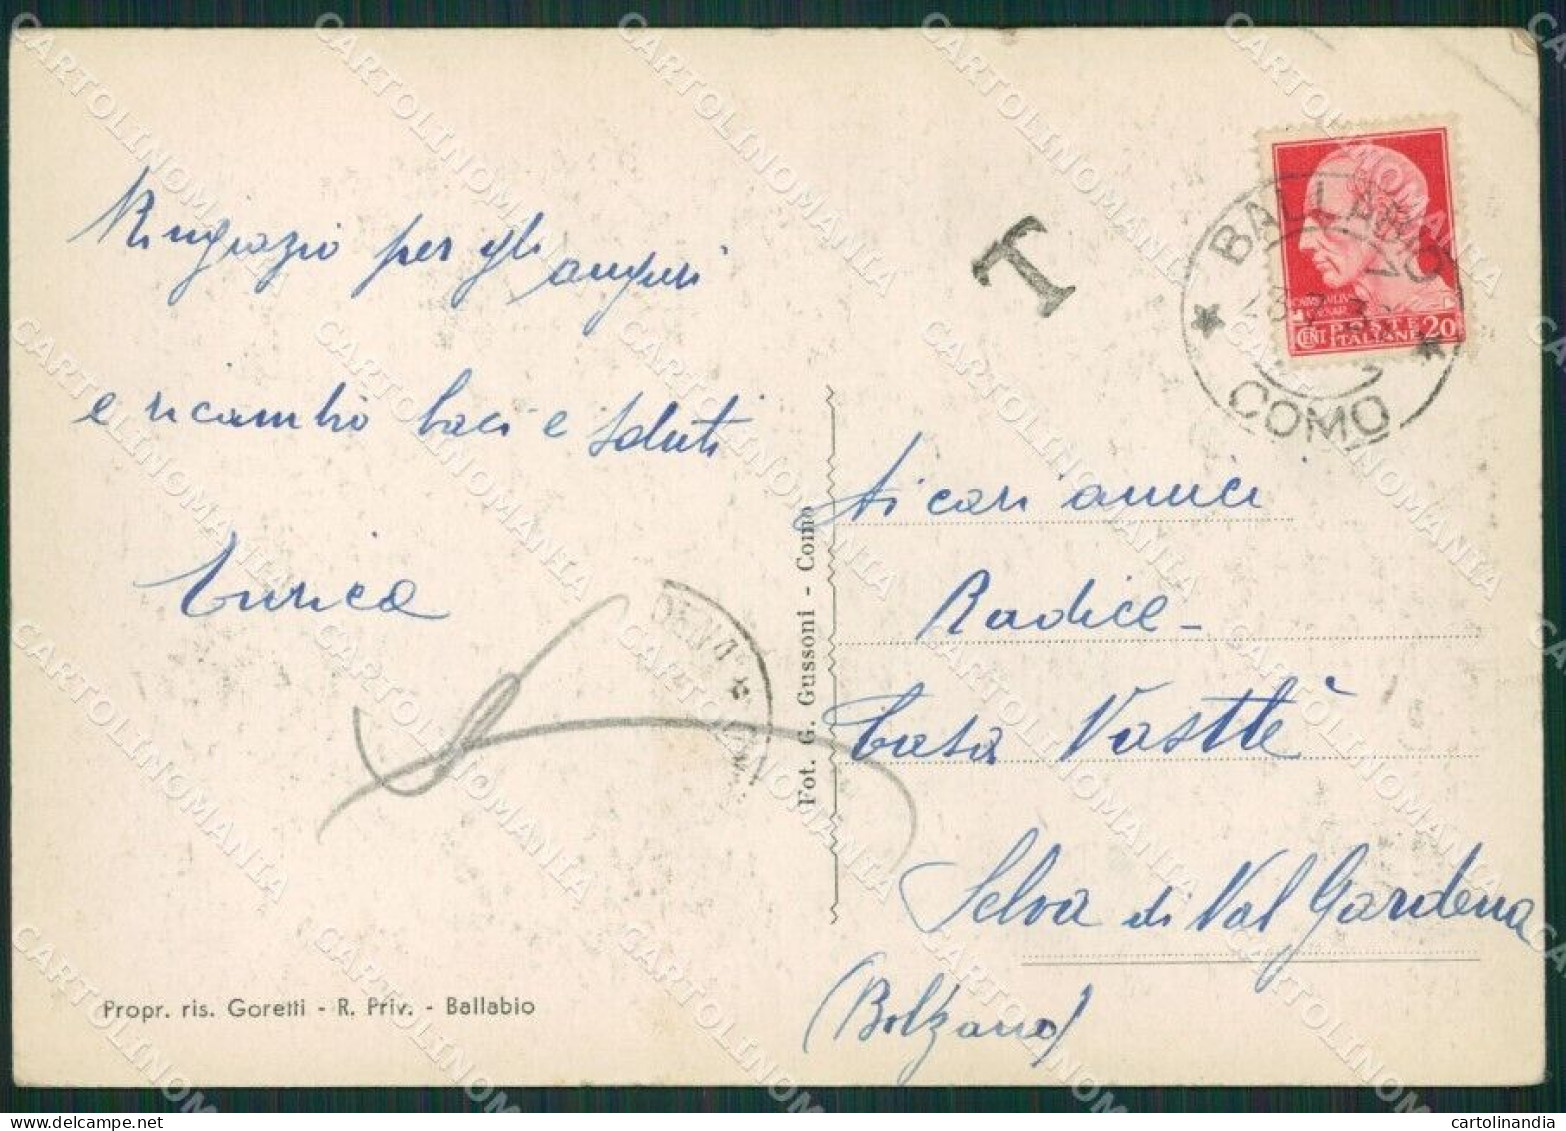 Ringrazio per gli auguri
e ricambio baci e saluti
Enrica
T
BALLABIO
COMO
POSTE
CENT ITALIANE 20
Ai cari amici
Radice -
Casa Vastlè
Selva di Val Gardena
(Bolzano)
Fot. G. Gussoni - Como
Propr. ris. Goretti - R. Priv. - Ballabio
CARTOLINOMANIA
cartolinandia